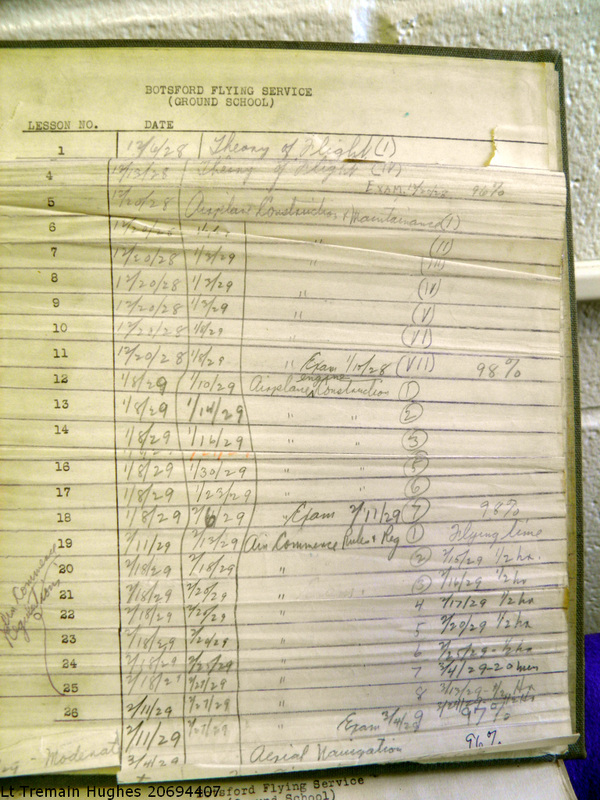 BOTSFORD FLYING SERVICE
(GROUND SCHOOL)
LESSON NO. DATE
1 12/6/28 Theory of Flight (1)
4 12/13/28 Theory of Flight (IV)
EXAM 96%
5 12/20/28 Airplane Construction & Maintainance (1)
6 " (II)
7 12/20/28 1/2/29 " (III)
8 12/20/28 1/2/29 " (IV)
9 12/20/28 1/2/29 " (V)
10 1/8/29 " (VI)
11 12/20/28 1/8/29 " Exam 1/10/28 (VII) 98%
12 1/8/29 1/10/29 Airplane engine Construction (1)
13 1/8/29 1/14/29 " " (2)
14 1/8/29 1/16/29 " " (3)
16 1/8/29 1/30/29 " " (5)
17 1/8/29 1/23/29 " " (6)
18 1/8/29 2/6/29 " Exam 2/11/29 (7) 98%
19 2/11/29 2/13/29 Air Commerce Rules & Reg (1) Flying time
20 2/18/29 2/18/29 " (2) 2/15/29 1/2 hr.
21 2/18/29 2/20/29 " (3) 2/16/29 1/2 hr
22 2/18/29 2/20/29 " 4 2/17/29 1/2 hr
23 2/18/29 2/20/29 " 5 2/20/29 1/2 hr
24 2/18/29 2/25/29 " 6 2/25/29 - 1/2 hr
25 2/18/29 " 7 3/4/29 - 20 min
26 2/11/29 2/27/29 " 8
2/11/29 2/27/29 " Exam 3/4/29 9 97%
3/4/29 Aerial Navigation 96%
Air Commerce
Regulations
Botsford Flying Service
(Ground School)
Lt Tremain Hughes 20694407